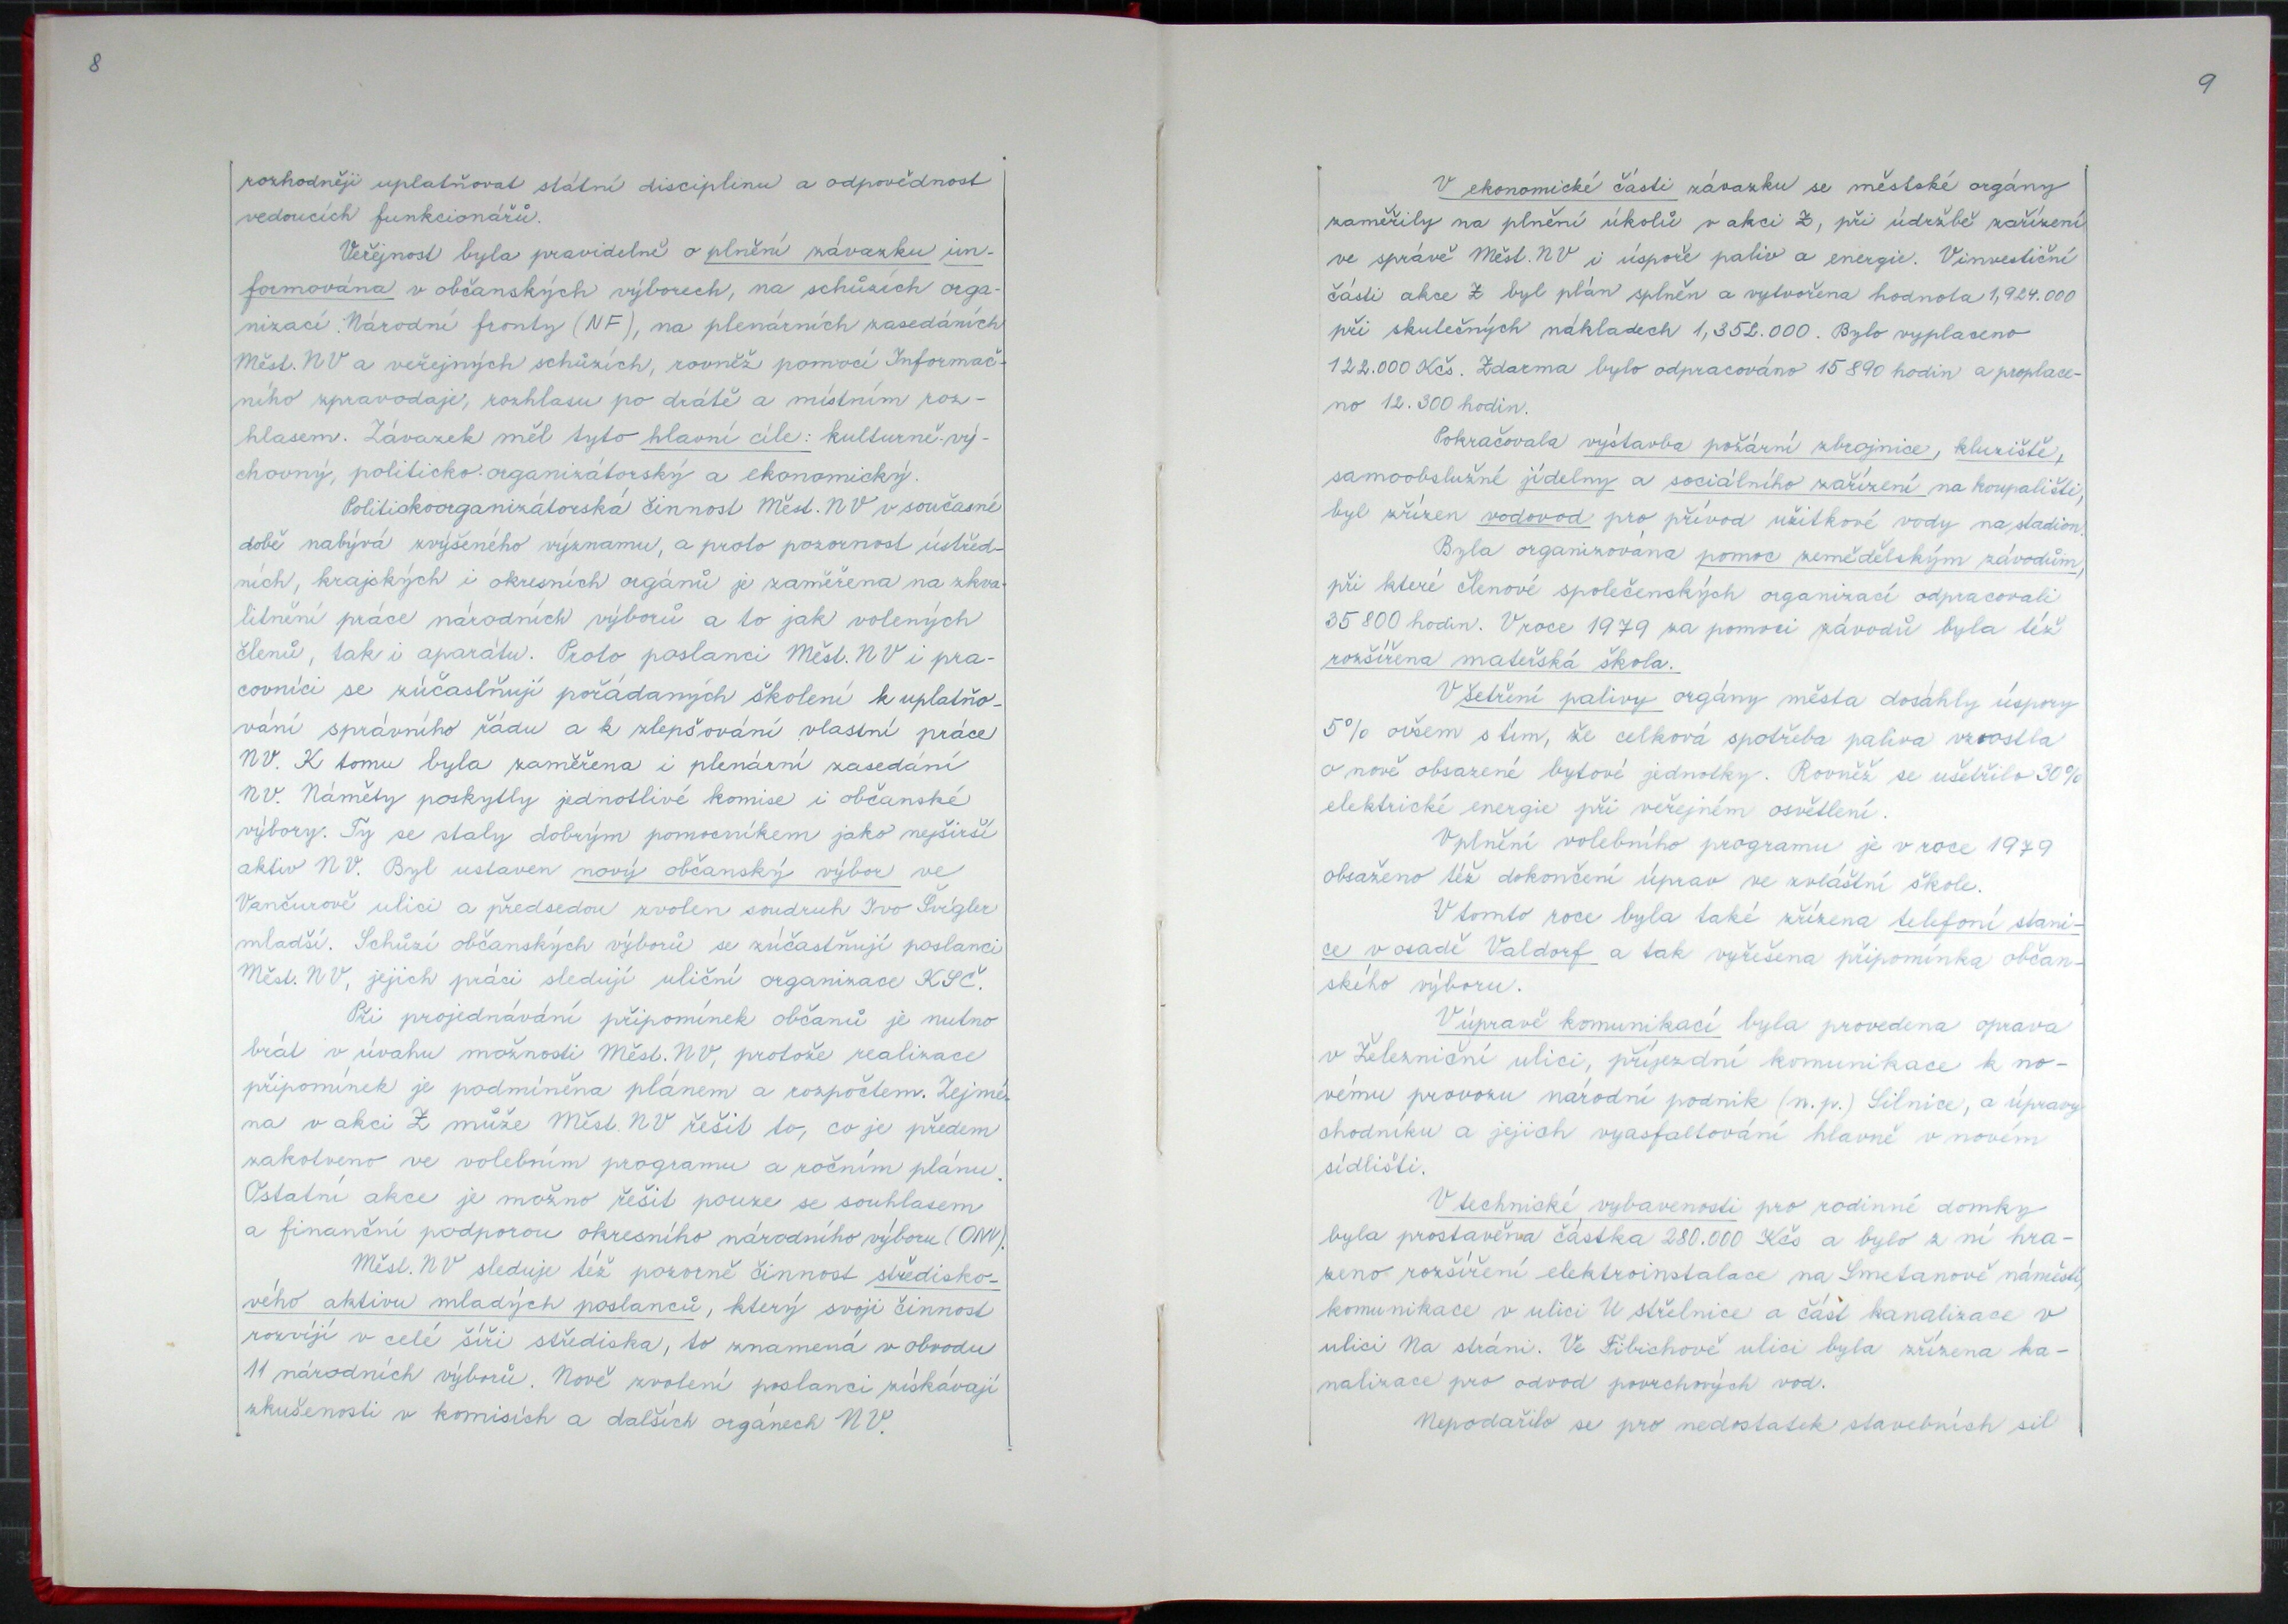 8
rozhodněji uplatňovat státní disciplinu a odpovědnost
vedoucích funkcionářů.
Veřejnost byla pravidelně o plnění závazku in-
formována v občanských výborech, na schůzích orga-
nizací Národní fronty (NF), na plenárních zasedáních
Měst. NV a veřejných schůzích, rovněž pomocí Informač-
ního zpravodaje, rozhlasu po drátě a místním roz-
hlasem. Závazek měl tyto hlavní cíle: kulturně-vý-
chovný, politicko-organizátorský a ekonomický.
Politickoorganizátorská činnost Měst. NV v současné
době nabývá zvýšeného významu, a proto pozornost ústřed-
ních, krajských i okresních orgánů je zaměřena na zkva-
litnění práce národních výborů a to jak volených
členů, tak i aparátu. Proto poslanci Měst. NV i pra-
covníci se zúčastňují pořádaných školení k uplatňo-
vání správního řádu a k zlepšování vlastní práce
NV. K tomu byla zaměřena i plenární zasedání
NV. Náměty poskytly jednotlivé komise i občanské
výbory. Ty se staly dobrým pomocníkem jako nejširší
aktiv NV. Byl ustaven nový občanský výbor ve
Vančurově ulici a předsedou zvolen soudruh Ivo Švígler
mladší. Schůzí občanských výborů se zúčastňují poslanci
Měst. NV, jejich práci sledují uliční organizace KSČ.
Při projednávání připomínek občanů je nutno
brát v úvahu možnosti Měst. NV, protože realizace
připomínek je podmíněna plánem a rozpočtem. Zejmé-
na v akci Z může Měst. NV řešit to, co je předem
zakotveno ve volebním programu a ročním plánu.
Ostatní akce je možno řešit pouze se souhlasem
a finanční podporou okresního národního výboru (ONV).
Měst. NV sleduje též pozorně činnost středisko-
vého aktivu mladých poslanců, který svoji činnost
rozvíjí v celé šíři střediska, to znamená v obvodu
11 národních výborů. Nově zvolení poslanci získávají
zkušenosti v komisích a dalších orgánech NV.
9
V ekonomické části závazku se městské orgány
zaměřily na plnění úkolů v akci Z, při údržbě zařízení
ve správě Měst. NV i úspoře paliv a energie. V investiční
části akce Z byl plán splněn a vytvořena hodnota 1,924.000
při skutečných nákladech 1,352.000. Bylo vyplaceno
122.000 Kčs. Zdarma bylo odpracováno 15 890 hodin a proplace-
no 12.300 hodin.
Pokračovala výstavba požární zbrojnice, kluziště,
samoobslužné jídelny a sociálního zařízení na koupališti,
byl zřízen vodovod pro přívod užitkové vody na stadion.
Byla organizována pomoc zemědělským závodům,
při které členové společenských organizací odpracovali
35 800 hodin. V roce 1979 za pomoci závodů byla též
rozšířena mateřská škola.
V šetření palivy orgány města dosáhly úspory
5% ovšem s tím, že celková spotřeba paliva vzrostla
o nově obsazené bytové jednotky. Rovněž se ušetřilo 30%
elektrické energie při veřejném osvětlení.
V plnění volebního programu je v roce 1979
obsaženo též dokončení úprav ve zvláštní škole.
V tomto roce byla také zřízena telefoní stani-
ce v osadě Valdorf a tak vyřešena připomínka občan-
ského výboru.
V úpravě komunikací byla provedena oprava
v Železniční ulici, příjezdní komunikace k no-
vému provozu národní podnik (n.p.) Silnice, a úpravy
chodníku a jejich vyasfaltování hlavně v novém
sídlišti.
V technické vybavenosti pro rodinné domky
byla prostavěna částka 280.000 Kčs a bylo z ní hra-
zeno rozšíření elektroinstalace na Smetanově náměstí,
komunikace v ulici U střelnice a část kanalizace v
ulici Na stráni. Ve Fibichově ulici byla zřízena ka-
nalizace pro odvod povrchových vod.
Nepodařilo se pro nedostatek stavebních sil